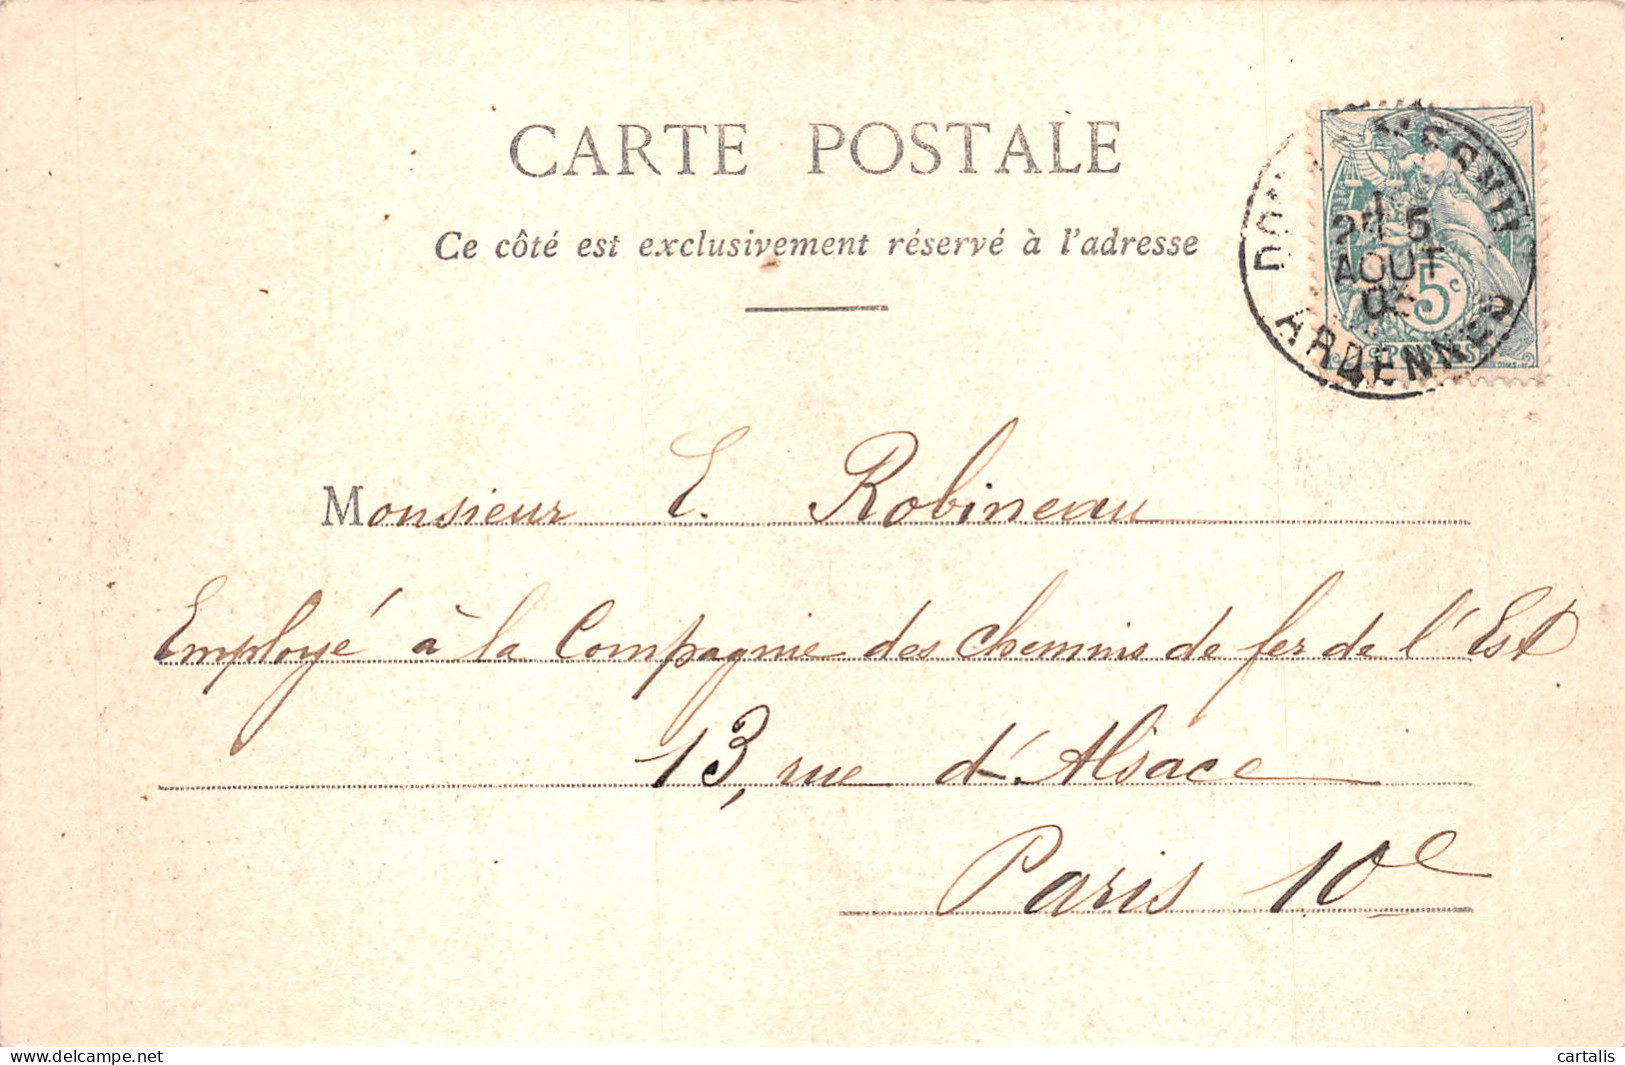 CARTE POSTALE
Ce côté est exclusivement réservé à l'adresse
AOUT
ARDENNES
5c
POSTES
Monsieur E. Robineau
Employé à la Compagnie des chemins de fer de l'Est
13, rue d'Alsace
Paris 10e
delcampe.net
cartalis